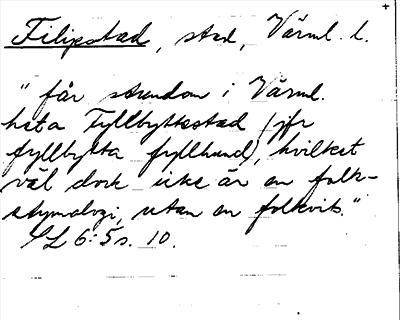 Filipstad, stad, Värml. l.
"får stundom i Värml.
heta Fyllbyttstad (jfr
fyllbytta fyllhund), hvilket
väl dock icke är en folk-
etymologi, utan en folkvits."
SL 6:5 s. 10.